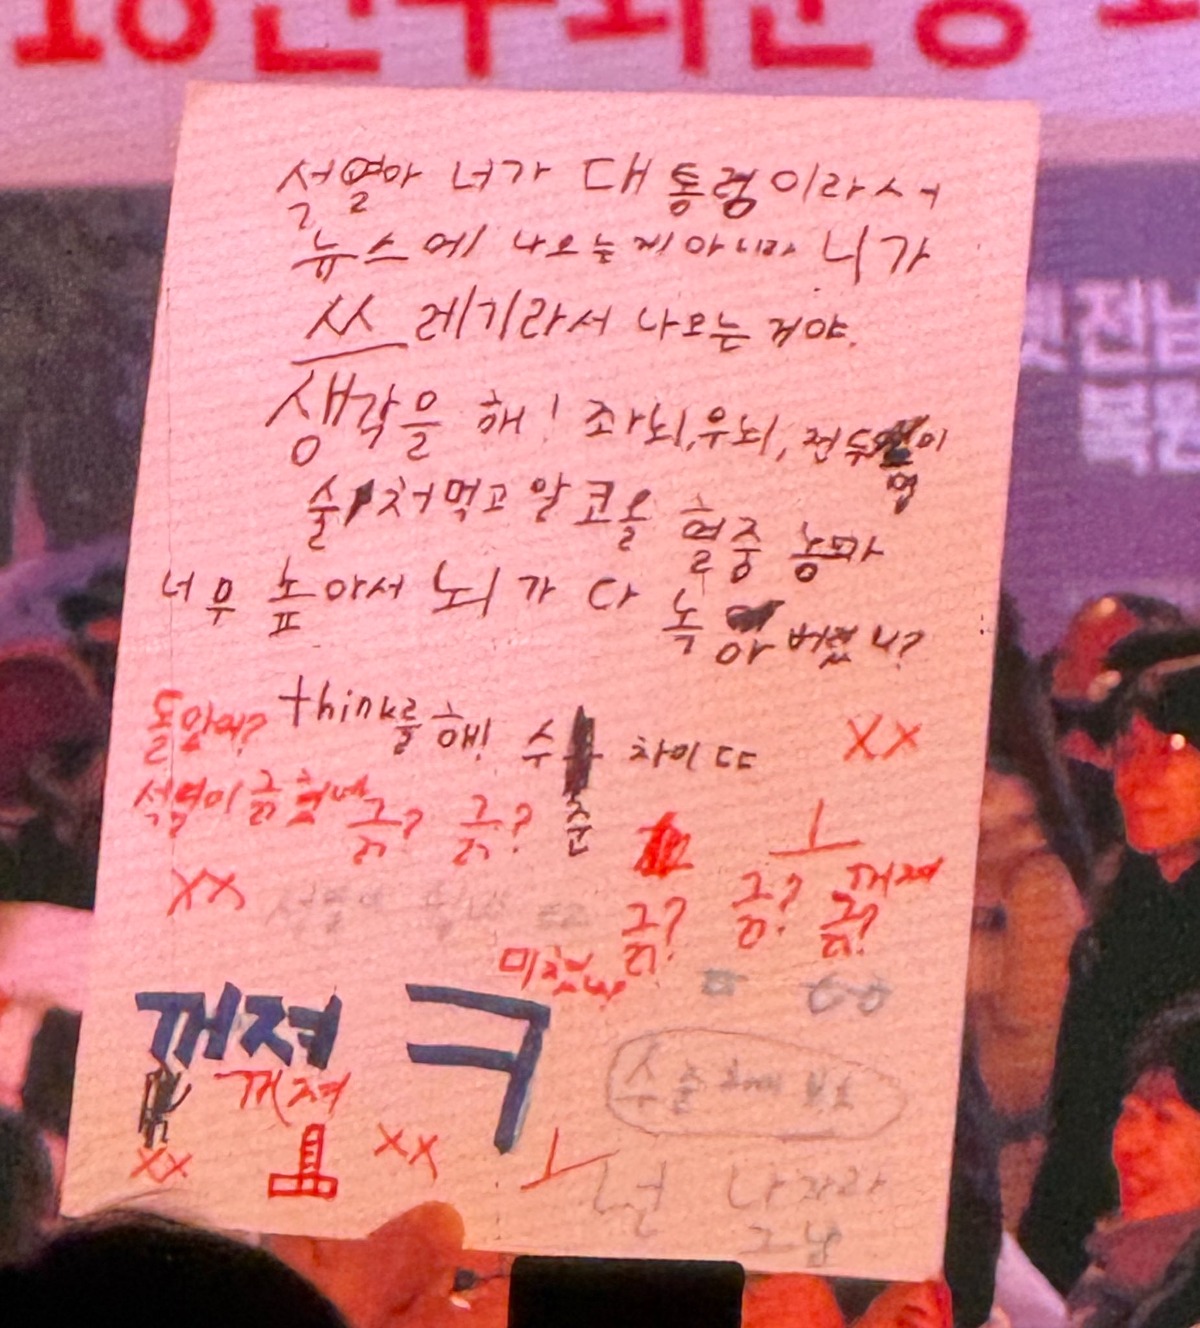 석열아 너가 대통령이라서
뉴스에 나오는게 아니라 니가
쓰레기라서 나오는 거야.
생각을 해! 좌뇌, 우뇌, 전두엽이
술 쳐먹고 알코올 혈중 농도가
너무 높아서 뇌가 다 녹아버렸니?
think를 해! 수준 차이 ㄸㄷ
XX
석열이 긁혔네
긁? 긁? ㅗ
꺼져
XX
긁? 긁? 긁?
미쳤냐
꺼져 ㅋ
꺼져
XX
XX
ㅗ
넌 나자라
그냥
전남